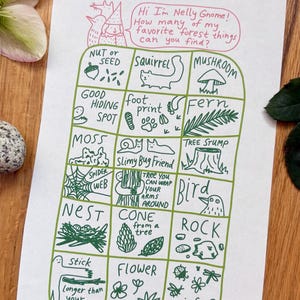 Hi! I'm Nelly Gnome!
How many of my
favorite forest things
can you find?
NUT or
SEED
SQUIRREL
MUSHROOM
GOOD
HIDING
SPOT
foot
print
Fern
MOSS
Slimy Bug Friend
TREE STUMP
SPIDER
WEB
TREE YOU
CAN WRAP
YOUR
ARMS
AROUND
Bird
NEST
CONE
from a
tree
ROCK
Stick
longer than
your
FLOWER